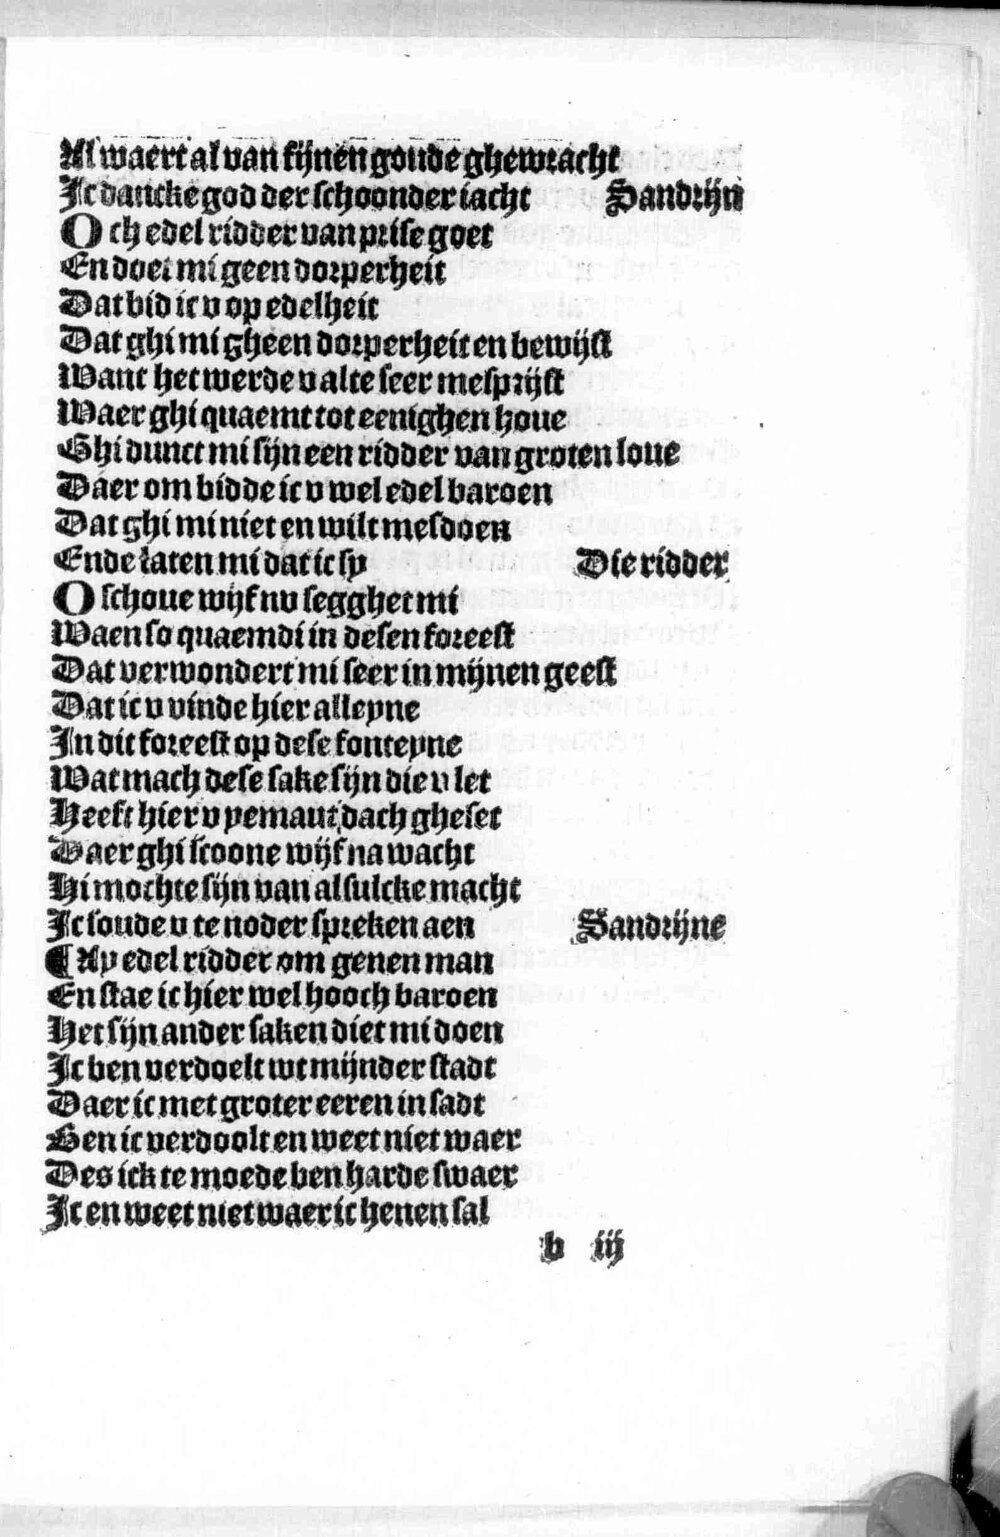 Al waert al van fijnen goude ghewracht
Ic dancke god der schoonder iacht Sandrijn
Och edel ridder van prise goet
En doet mi geen dorperheit
Dat bid ic v op edelheit
Dat ghi mi gheen dorperheit en bewijst
Want het werde v al te seer mesprijst
Waer ghi quaemt tot eenighen houe
Ghi dunct mi sijn een ridder van groten loue
Daer om bidde ic v wel edel baroen
Dat ghi mi niet en wilt mesdoen
Ende laten mi dat ic sy Die ridder
O schoue wijf nv segghet mi
Waen so quaemdi in desen foreest
Dat verwondert mi seer in mijnen geest
Dat ic v vinde hier alleyne
In dit foreest op dese fonteyne
Wat mach dese sake sijn die v let
Heeft hier v yemant dach gheset
Daer ghi scoone wijf na wacht
Hi mochte sijn van al sulcke macht
Ic soude v te noder spreken aen Sandrijne
¶ Ay edel ridder om genen man
En stae ic hier wel hooch baroen
Het sijn ander saken diet mi doen
Ic ben verdoelt wt mijnder stadt
Daer ic met groter eeren in sadt
Ben ic verdoolt en weet niet waer
Des ick te moede ben harde swaer
Ic en weet niet waer ic henen sal
b iij